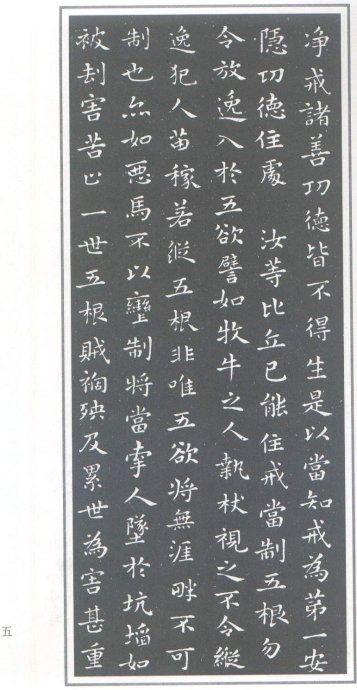 净戒諸善功德皆不得生是以當知戒為第一安
隱功德住處　汝等比丘已能住戒當制五根勿
令放逸入於五欲譬如牧牛之人執杖視之不令縱
逸犯人苗稼若縱五根非唯五欲將無涯畔不可
制也亦如惡馬不以轡制將當牽人墜於坑埳如
被劫害苦止一世五根賊禍殃及累世為害甚重
五